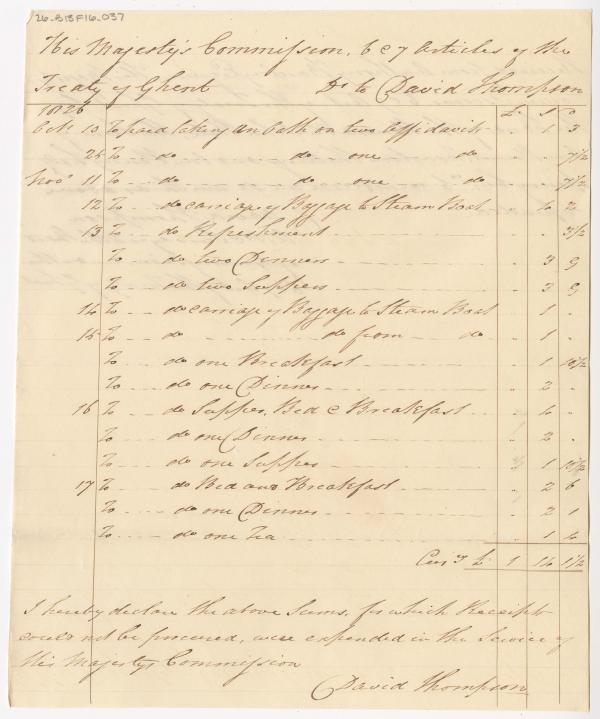 26-B13F16-037
His Majesty's Commission, 6 & 7 Articles of the
Treaty of Ghent Dr to David Thompson
1826 £ S D
Octr 13 To paid taking an Oath on two Affidavits .. 1 3
25 To .. do .. do .. one do .. . 7 1/2
Novr 11 To .. do .. do one do .. . 7 1/2
12 To .. do carriage of Baggage to Steam Boat .. 4 2
13 To .. do Refreshment .. . 3 1/2
To .. do two Dinners .. 3 9
To .. do two Suppers .. 3 9
14 To .. do carriage of Baggage to Steam Boat . 1 .
15 To .. do .. do from do . 1 .
To .. do one Breakfast . 1 10 1/2
To .. do one Dinner .. 2 .
16 To .. do Supper, Bed & Breakfast . 4 .
To .. do one Dinner . 2 .
To .. do one Supper 1 10 1/2
17 To .. do Bed and Breakfast .. 2 6
To .. do one Dinner .. 2 1
To .. do one Tea . 1 4
Curry £ 1 14 1 1/2
I hereby declare the above Sums, for which Receipts
could not be procured, were expended in the Service of
His Majesty's Commission
David Thompson